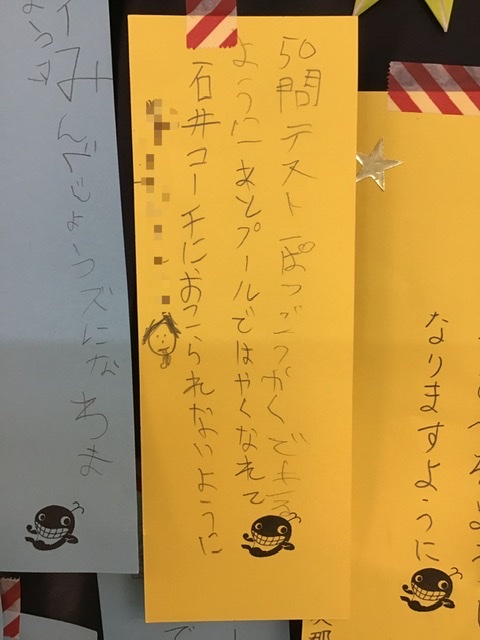 なりますように
50問テスト ぱつごうかくできる
ように あとプールではやくなれて
石井コーチにおこられないように
みんでじょうズになりま